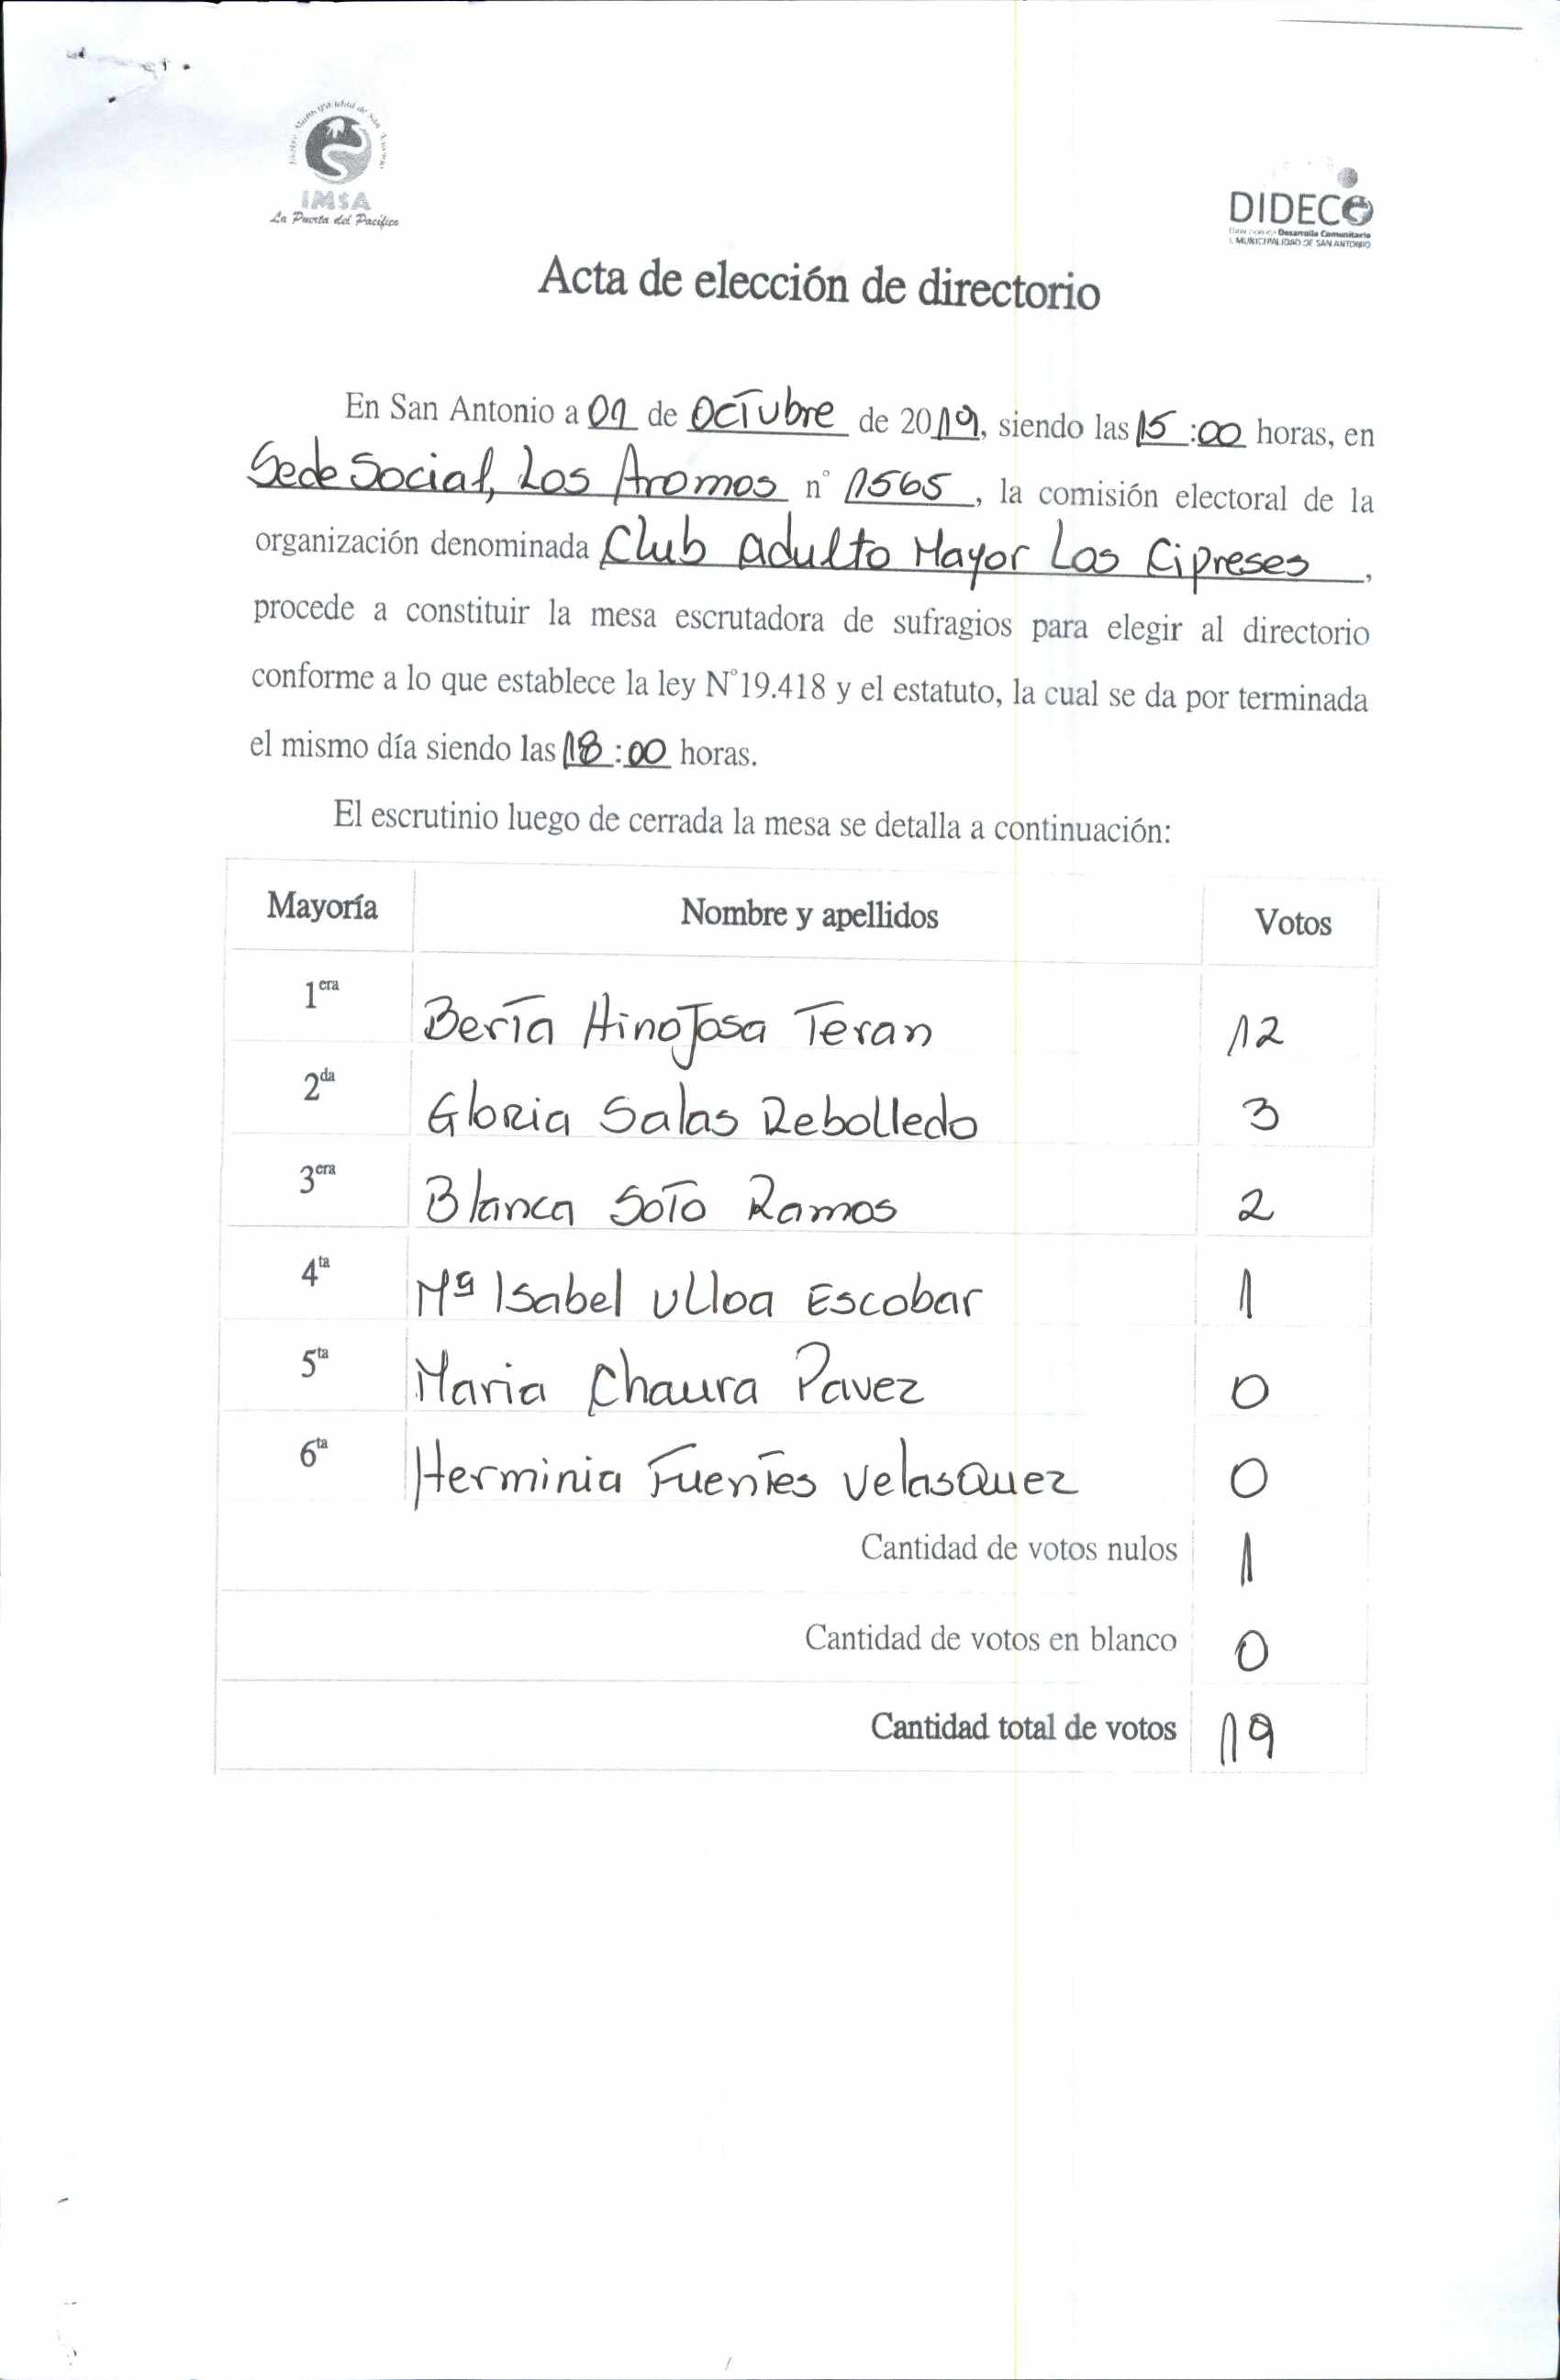 IMSA
La Puerta del Pacífico
DIDECO
Desarrollo Comunitario
I. MUNICIPALIDAD DE SAN ANTONIO
Acta de elección de directorio
En San Antonio a 09 de Octubre de 2019, siendo las 15:00 horas, en
Sede Social, Los Aromos n° 1565, la comisión electoral de la
organización denominada Club adulto Mayor Los Cipreses,
procede a constituir la mesa escrutadora de sufragios para elegir al directorio
conforme a lo que establece la ley N°19.418 y el estatuto, la cual se da por terminada
el mismo día siendo las 18:00 horas.
El escrutinio luego de cerrada la mesa se detalla a continuación:
Mayoría Nombre y apellidos Votos
1era Berta Hinojosa Teran 12
2da Gloria Salas Rebolledo 3
3era Blanca Soto Ramos 2
4ta Mª Isabel Ulloa Escobar 1
5ta Maria Chaura Pavez 0
6ta Herminia Fuentes Velasquez 0
Cantidad de votos nulos 1
Cantidad de votos en blanco 0
Cantidad total de votos 19